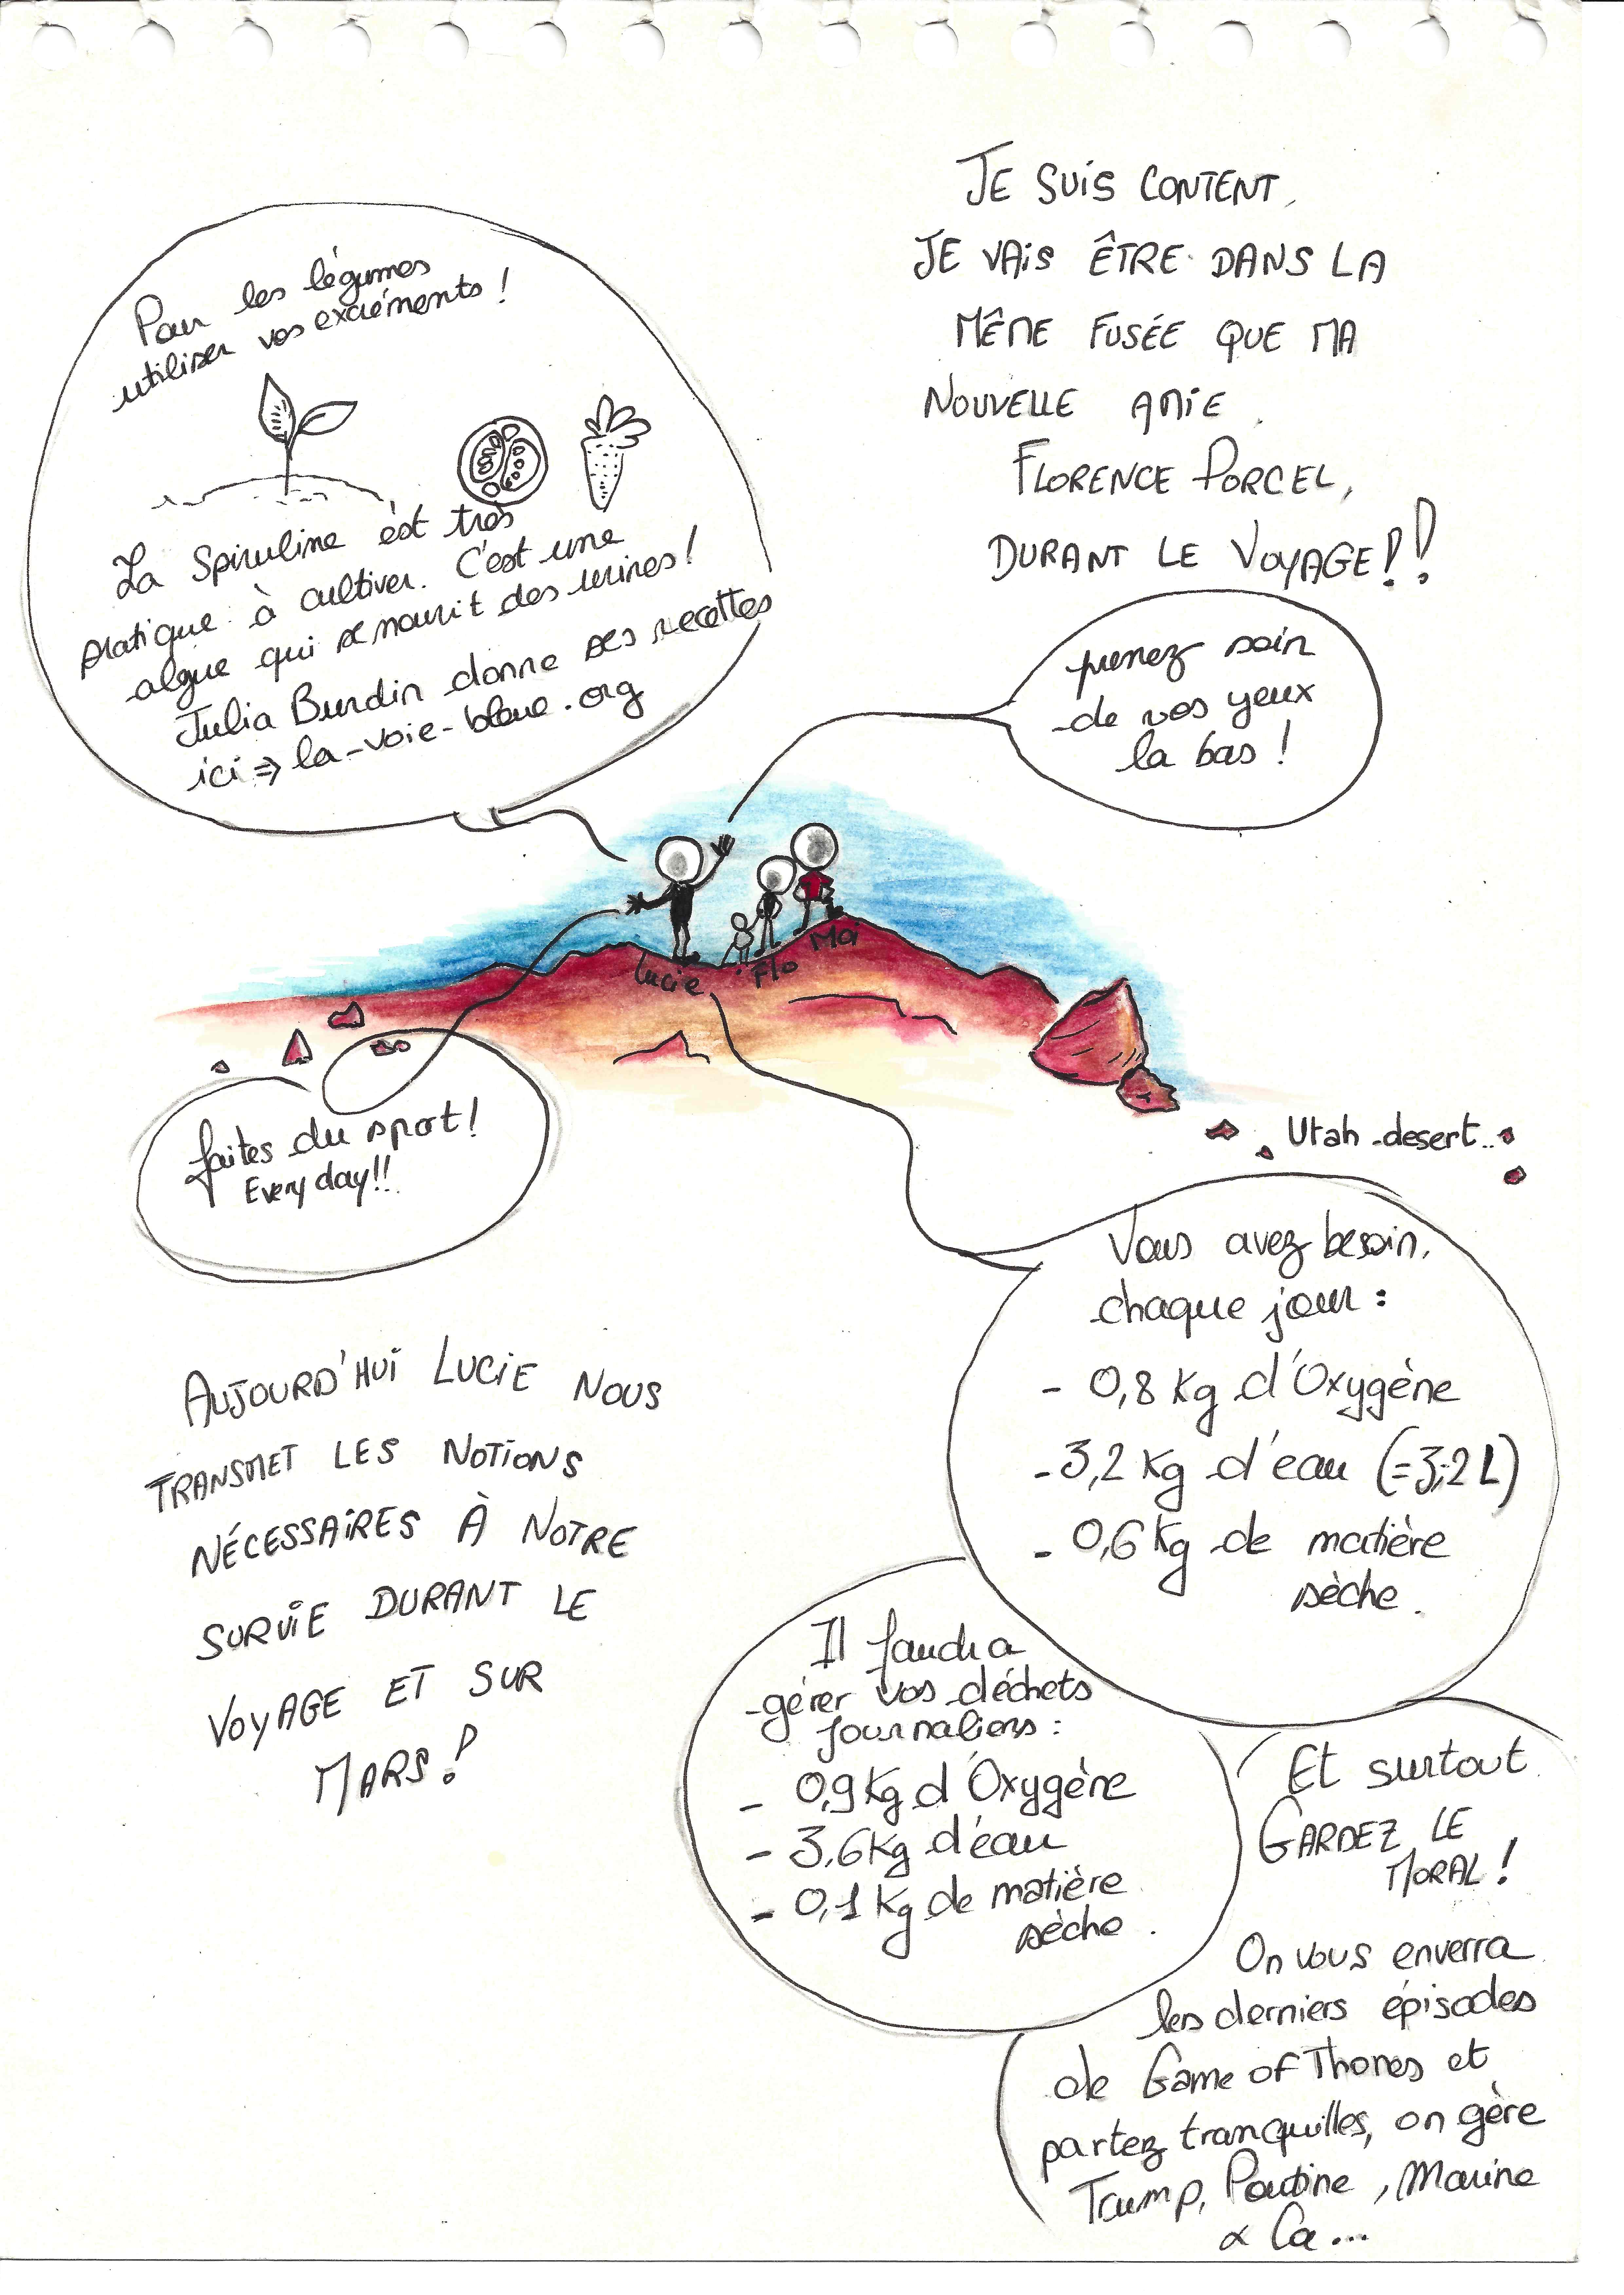 JE SUIS CONTENT,
JE VAIS ÊTRE DANS LA
MÊME FUSÉE QUE MA
NOUVELLE AMIE
FLORENCE PORCEL,
DURANT LE VOYAGE!!
Pour les légumes
utiliser vos excréments !
La Spiruline est très
pratique à cultiver. C'est une
algue qui se nourrit des urines !
Julia Burdin donne ses recettes
ici ⇒ la-voie-bleue.org
prenez soin
de vos yeux
la bas !
Lucie
Flo
Moi
faites du sport !
Every day!!
Utah desert..
Vous avez besoin,
chaque jour :
- 0,8 Kg d'Oxygène
- 3,2 Kg d'eau (=3,2 L)
- 0,6 Kg de matière
sèche.
AUJOURD'HUI LUCIE NOUS
TRANSMET LES NOTIONS
NÉCESSAIRES À NOTRE
SURVIE DURANT LE
VOYAGE ET SUR
MARS !
Il faudra
gérer vos déchets
journaliers :
- 0,9 Kg d'Oxygène
- 3,6 Kg d'eau
- 0,1 Kg de matière
sèche.
Et surtout
GARDEZ LE
MORAL !
On vous enverra
les derniers épisodes
de Game of Thones et
partez tranquilles, on gère
Trump, Poutine, Marine
& Ca...